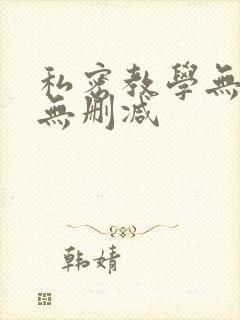 私密教學無
無刪減
韩婧